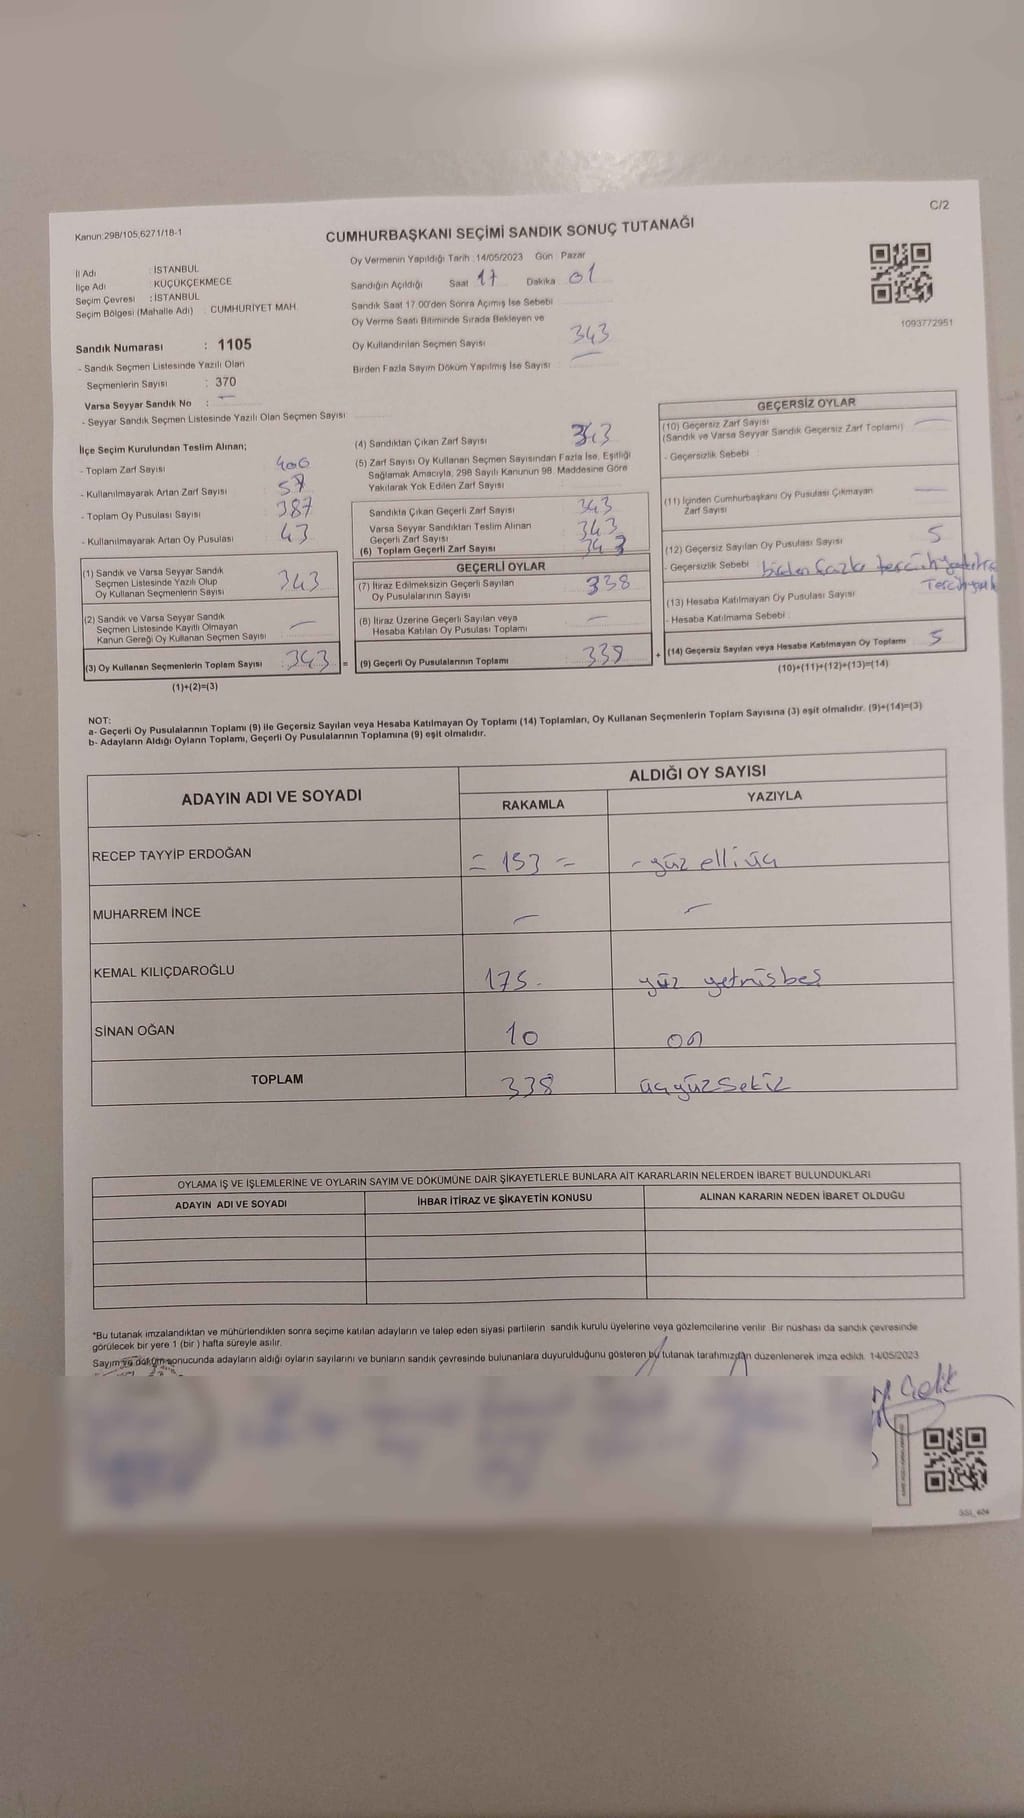 C/2
Kanun:298/105,6271/18-1
CUMHURBAŞKANI SEÇİMİ SANDIK SONUÇ TUTANAĞI
İl Adı : İSTANBUL
İlçe Adı : KÜÇÜKÇEKMECE
Seçim Çevresi : İSTANBUL
Seçim Bölgesi (Mahalle Adı) : CUMHURİYET MAH.
Oy Vermenin Yapıldığı Tarih : 14/05/2023 Gün : Pazar
Sandığın Açıldığı Saat 17 Dakika 01
Sandık Saat 17.00'den Sonra Açımış İse Sebebi
Oy Verme Saati Bitiminde Sırada Bekleyen ve
Oy Kullandırılan Seçmen Sayısı 343
Birden Fazla Sayım Döküm Yapılmış İse Sayısı —
1093772951
Sandık Numarası : 1105
- Sandık Seçmen Listesinde Yazılı Olan
Seçmenlerin Sayısı : 370
Varsa Seyyar Sandık No : —
- Seyyar Sandık Seçmen Listesinde Yazılı Olan Seçmen Sayısı:
İlçe Seçim Kurulundan Teslim Alınan;
- Toplam Zarf Sayısı 400
- Kullanılmayarak Artan Zarf Sayısı 57
- Toplam Oy Pusulası Sayısı 387
- Kullanılmayarak Artan Oy Pusulası 43
(1) Sandık ve Varsa Seyyar Sandık
Seçmen Listesinde Yazılı Olup
Oy Kullanan Seçmenlerin Sayısı 343
(2) Sandık ve Varsa Seyyar Sandık
Seçmen Listesinde Kayıtlı Olmayan
Kanun Gereği Oy Kullanan Seçmen Sayısı —
(3) Oy Kullanan Seçmenlerin Toplam Sayısı : 343 =
(1)+(2)=(3)
(4) Sandıktan Çıkan Zarf Sayısı 343
(5) Zarf Sayısı Oy Kullanan Seçmen Sayısından Fazla İse, Eşitliği
Sağlamak Amacıyla, 298 Sayılı Kanunun 98. Maddesine Göre
Yakılarak Yok Edilen Zarf Sayısı
Sandıkta Çıkan Geçerli Zarf Sayısı 343
Varsa Seyyar Sandıktan Teslim Alınan
Geçerli Zarf Sayısı 343
(6) Toplam Geçerli Zarf Sayısı 343
GEÇERLİ OYLAR
(7) İtiraz Edilmeksizin Geçerli Sayılan
Oy Pusulalarının Sayısı 338
(8) İtiraz Üzerine Geçerli Sayılan veya
Hesaba Katılan Oy Pusulası Toplamı —
(9) Geçerli Oy Pusulalarının Toplamı 338 +
GEÇERSİZ OYLAR
(10) Geçersiz Zarf Sayısı
(Sandık ve Varsa Seyyar Sandık Geçersiz Zarf Toplamı) —
- Geçersizlik Sebebi :
(11) İçinden Cumhurbaşkanı Oy Pusulası Çıkmayan
Zarf Sayısı —
(12) Geçersiz Sayılan Oy Pusulası Sayısı 5
- Geçersizlik Sebebi birden fazla tercih
(13) Hesaba Katılmayan Oy Pusulası Sayısı
- Hesaba Katılmama Sebebi :
(14) Geçersiz Sayılan veya Hesaba Katılmayan Oy Toplamı 5
(10)+(11)+(12)+(13)=(14)
NOT:
a- Geçerli Oy Pusulalarının Toplamı (9) ile Geçersiz Sayılan veya Hesaba Katılmayan Oy Toplamı (14) Toplamları, Oy Kullanan Seçmenlerin Toplam Sayısına (3) eşit olmalıdır. (9)+(14)=(3)
b- Adayların Aldığı Oyların Toplamı, Geçerli Oy Pusulalarının Toplamına (9) eşit olmalıdır.
ADAYIN ADI VE SOYADI
ALDIĞI OY SAYISI
RAKAMLA YAZIYLA
RECEP TAYYİP ERDOĞAN = 153 = - yüz elli üç
MUHARREM İNCE — —
KEMAL KILIÇDAROĞLU 175. yüz yetmişbeş
SİNAN OĞAN 10 on
TOPLAM 338 üçyüzsekiz
OYLAMA İŞ VE İŞLEMLERİNE VE OYLARIN SAYIM VE DÖKÜMÜNE DAİR ŞİKAYETLERLE BUNLARA AİT KARARLARIN NELERDEN İBARET BULUNDUKLARI
ADAYIN ADI VE SOYADI İHBAR İTİRAZ VE ŞİKAYETİN KONUSU ALINAN KARARIN NEDEN İBARET OLDUĞU
*Bu tutanak imzalandıktan ve mühürlendikten sonra seçime katılan adayların ve talep eden siyasi partilerin sandık kurulu üyelerine veya gözlemcilerine verilir. Bir nüshası da sandık çevresinde
görülecek bir yere 1 (bir ) hafta süreyle asılır.
Sayım ve döküm sonucunda adayların aldığı oyların sayılarını ve bunların sandık çevresinde bulunanlara duyurulduğunu gösteren bu tutanak tarafımızdan düzenlenerek imza edildi. 14/05/2023
Çelik